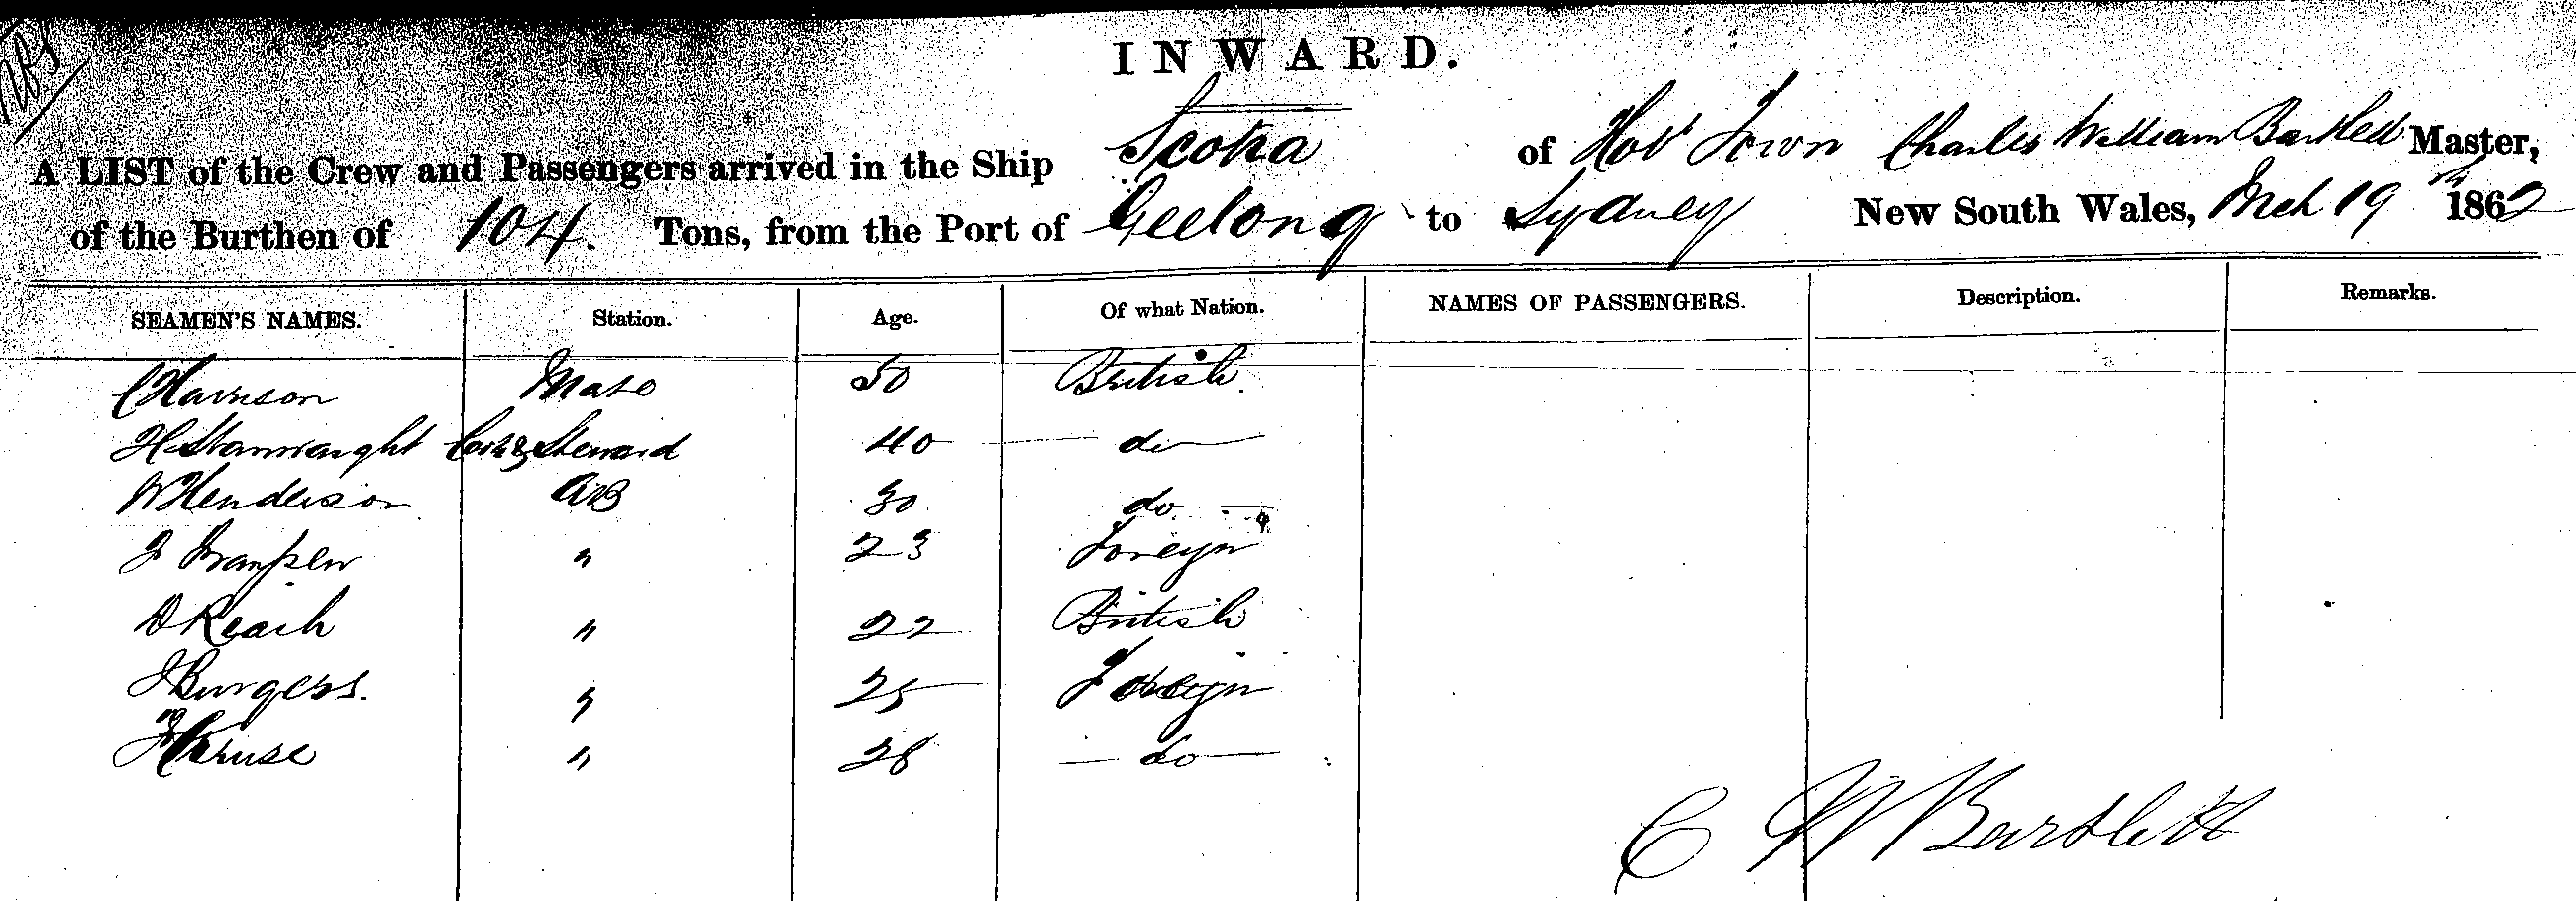 INWARD.
A LIST of the Crew and Passengers arrived in the Ship Scotia of Hob' Town Charles William Bartlett Master,
of the Burthen of 104. Tons, from the Port of Geelong to Sydney New South Wales, Mch 19th 1862
SEAMEN'S NAMES. Station. Age. Of what Nation. NAMES OF PASSENGERS. Description. Remarks.
C Harrison Mate 50 British
H Stanwaught Cook & Steward 40 do
W Henderson AB 30 do
J " 23 Foreign
D Reach " 22 British
J Burgess. " 25 Foreign
F Kruse " 28 do
C W Bartlett